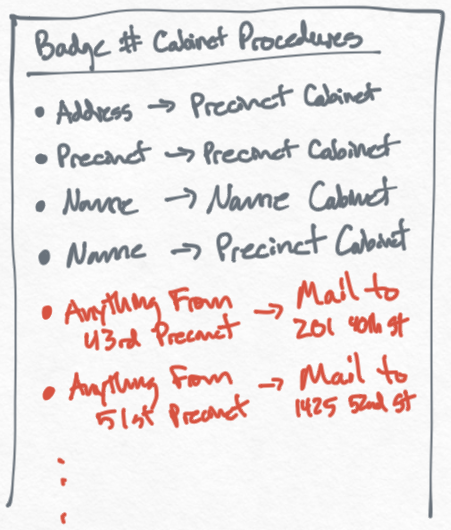 Badge # Cabinet Procedures
• Address → Precinct Cabinet
• Precinct → Precinct Cabinet
• Name → Name Cabinet
• Name → Precinct Cabinet
• Anything From → Mail to
43rd Precinct 201 40th st
• Anything From → Mail to
51st Precinct 1425 52nd St